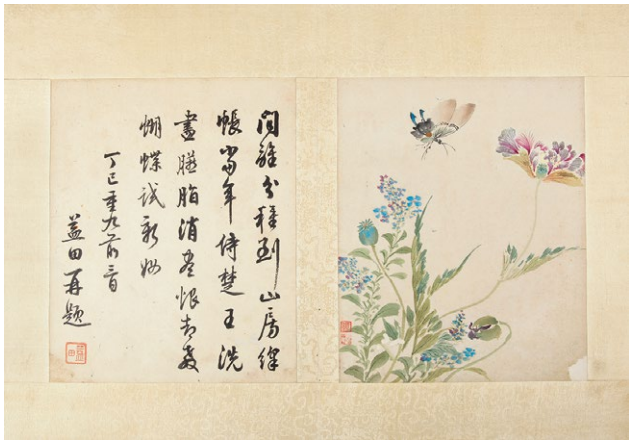 問誰分種到山房絳
帳當年侍楚王洗
盡臙脂消盡恨却教
蝴蝶試新妝
丁巳重九前三日
益田再題